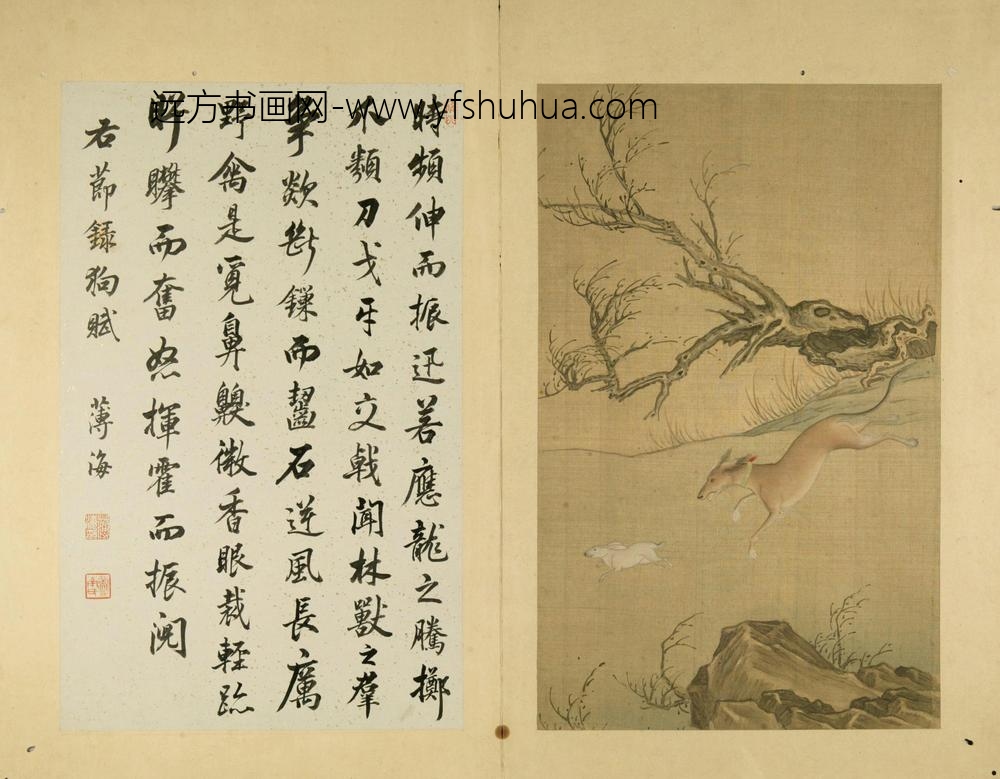 远方书画网-www.yfshuhua.com
時頻伸而振迅若應龍之騰擲
爪類刀戈牙如交戟聞林獸之群
挐欻斷鏁而齧石逆風長厲
野禽是覓鼻齅微香眼裁輕跡
眄矔而奮怒揮霍而振閱
右節錄狗賦
薄海